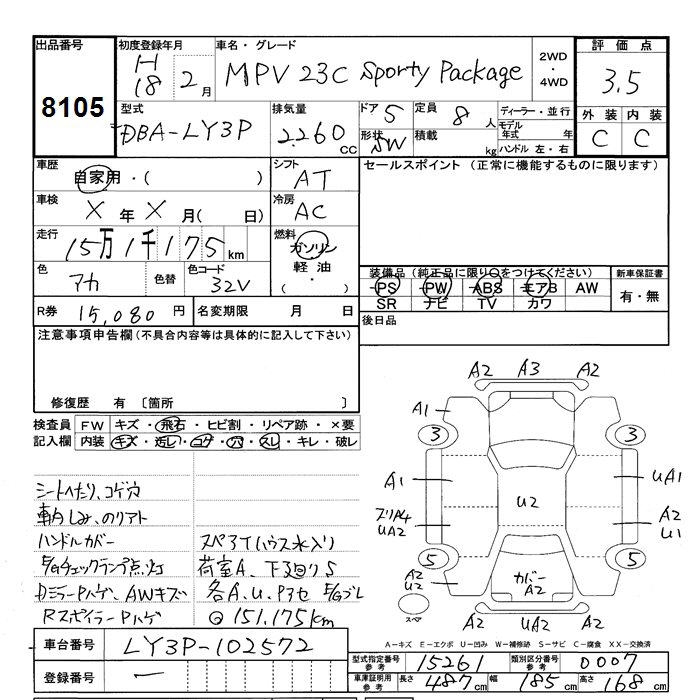 出品番号 8105
初度登録年月 H18 2月
車名・グレード MPV 23C Sporty Package
2WD・4WD
評価点 3.5
型式 DBA-LY3P
排気量 2260 CC
ドア 5
形状 SW
定員 8人
積載 kg
ディーラー・並行
モデル年式 年
ハンドル 左・右
外装 内装
C C
車歴 自家用・( )
シフト AT
セールスポイント (正常に機能するものに限ります)
車検 X年X月( 日)
冷房 AC
走行 15万1千175km
燃料 ガソリン
軽油
( ・ )
色 アカ 色替 色コード 32V
装備品(純正品に限り○をつけてください)
PS PW ABS エアB AW
SR ナビ TV カワ
新車保証書
有・無
R券 15,080円 名変期限 月 日
後日品
注意事項申告欄(不具合内容等は具体的に記入して下さい)
修復歴 有 〔箇所 〕
検査員記入欄
FW キズ・飛石・ヒビ割・リペア跡・×要
内装 キズ・汚レ・コゲ・穴・スレ・キレ・破レ
シートヘたり、コゲ穴
車内しみ、のりアト
ハンドルカバー
E/Gチェックランプ点灯
DミラーPハゲ、AWキズ
RスポイラーPハゲ
スペアTハウス水入り
荷室A、下廻りS
各A、U、Pアセ E/Gブレ
151,175km
A2 A3 A2
A1
3 3
A1 UA1
U2
UA2
A2
U1
5 5
A2
U2
カバー
A2
A2
スペア
A2 UA2 A2
A-キズ E-エクボ U-凹み W-補修跡 S-サビ C-腐食 XX-交換済
車台番号 LY3P-102572
登録番号 ー
型式指定番号 参考 15261 類別区分番号 参考 0007
車庫証明用 参考 長さ 487cm 幅 185cm 高さ 168cm